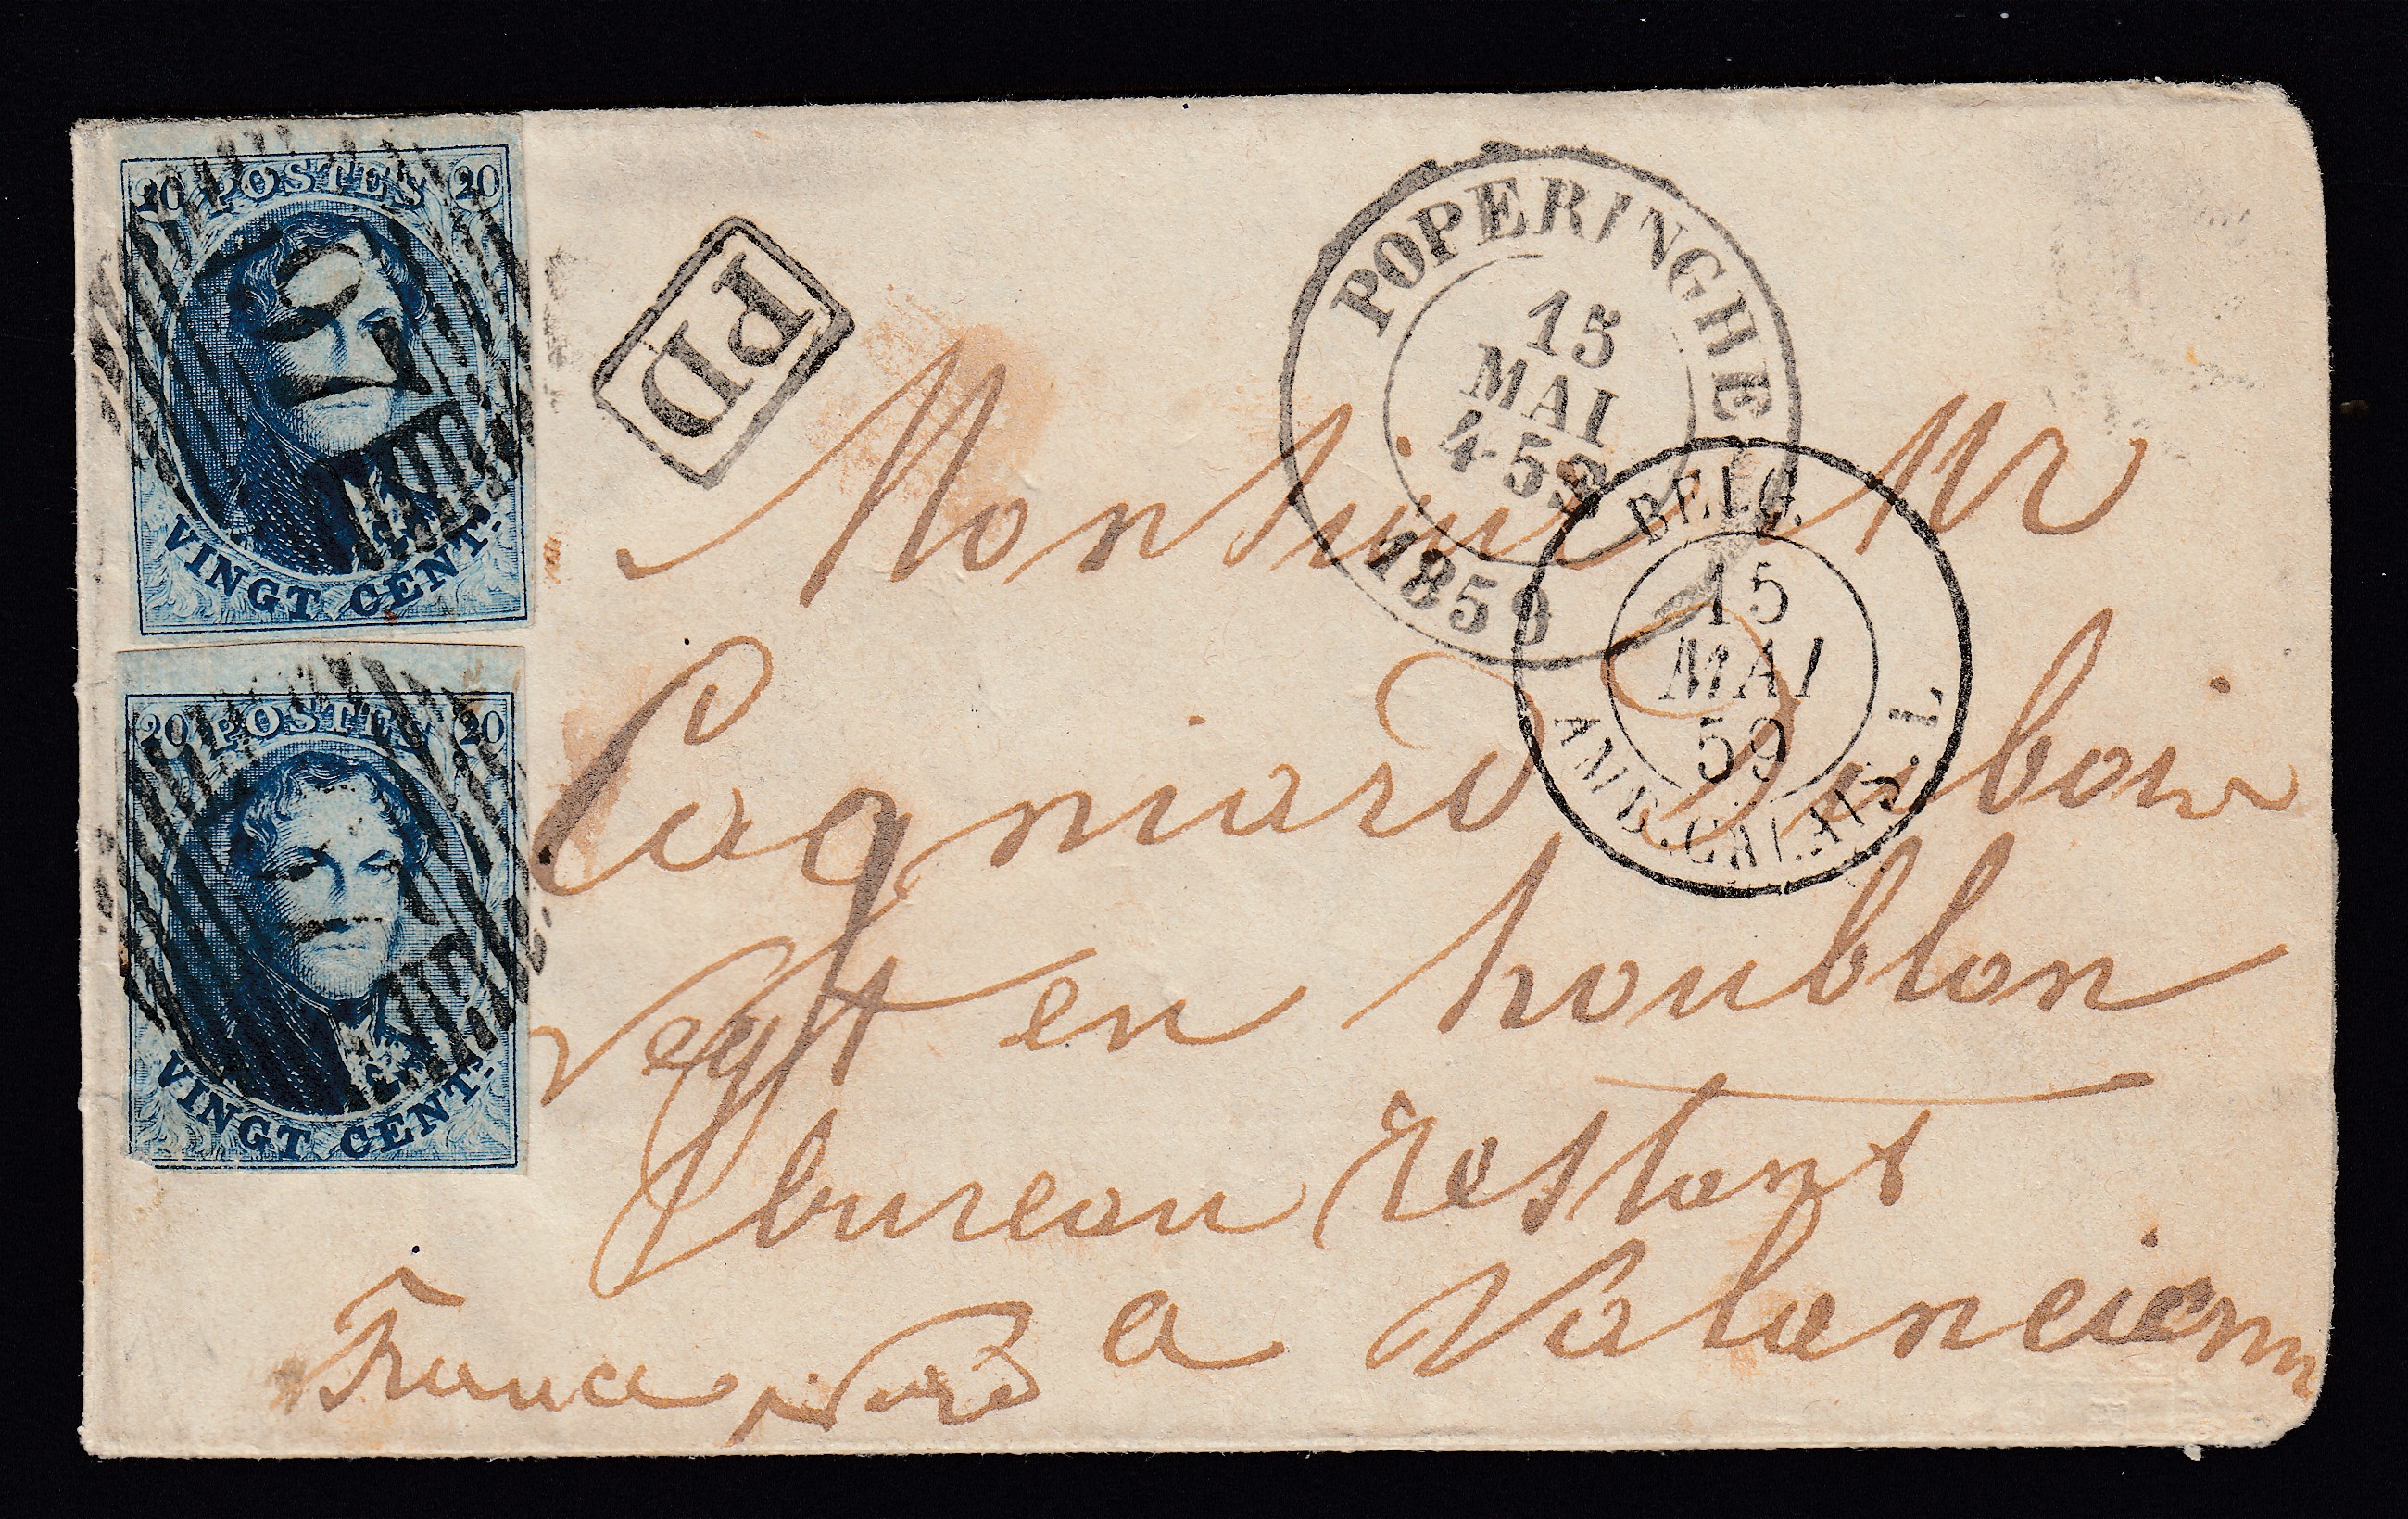 20 POSTES 20
VINGT CENT.
20 POSTES 20
VINGT CENT.
PD
POPERINGHE
15
MAI
4-5S
1859
BELG.
15
MAI
59
AMB. CALAIS. L
Monsieur Mr
Cagniard Dubois
Negt en houblon
bureau restant
a Valencienn
France Nord